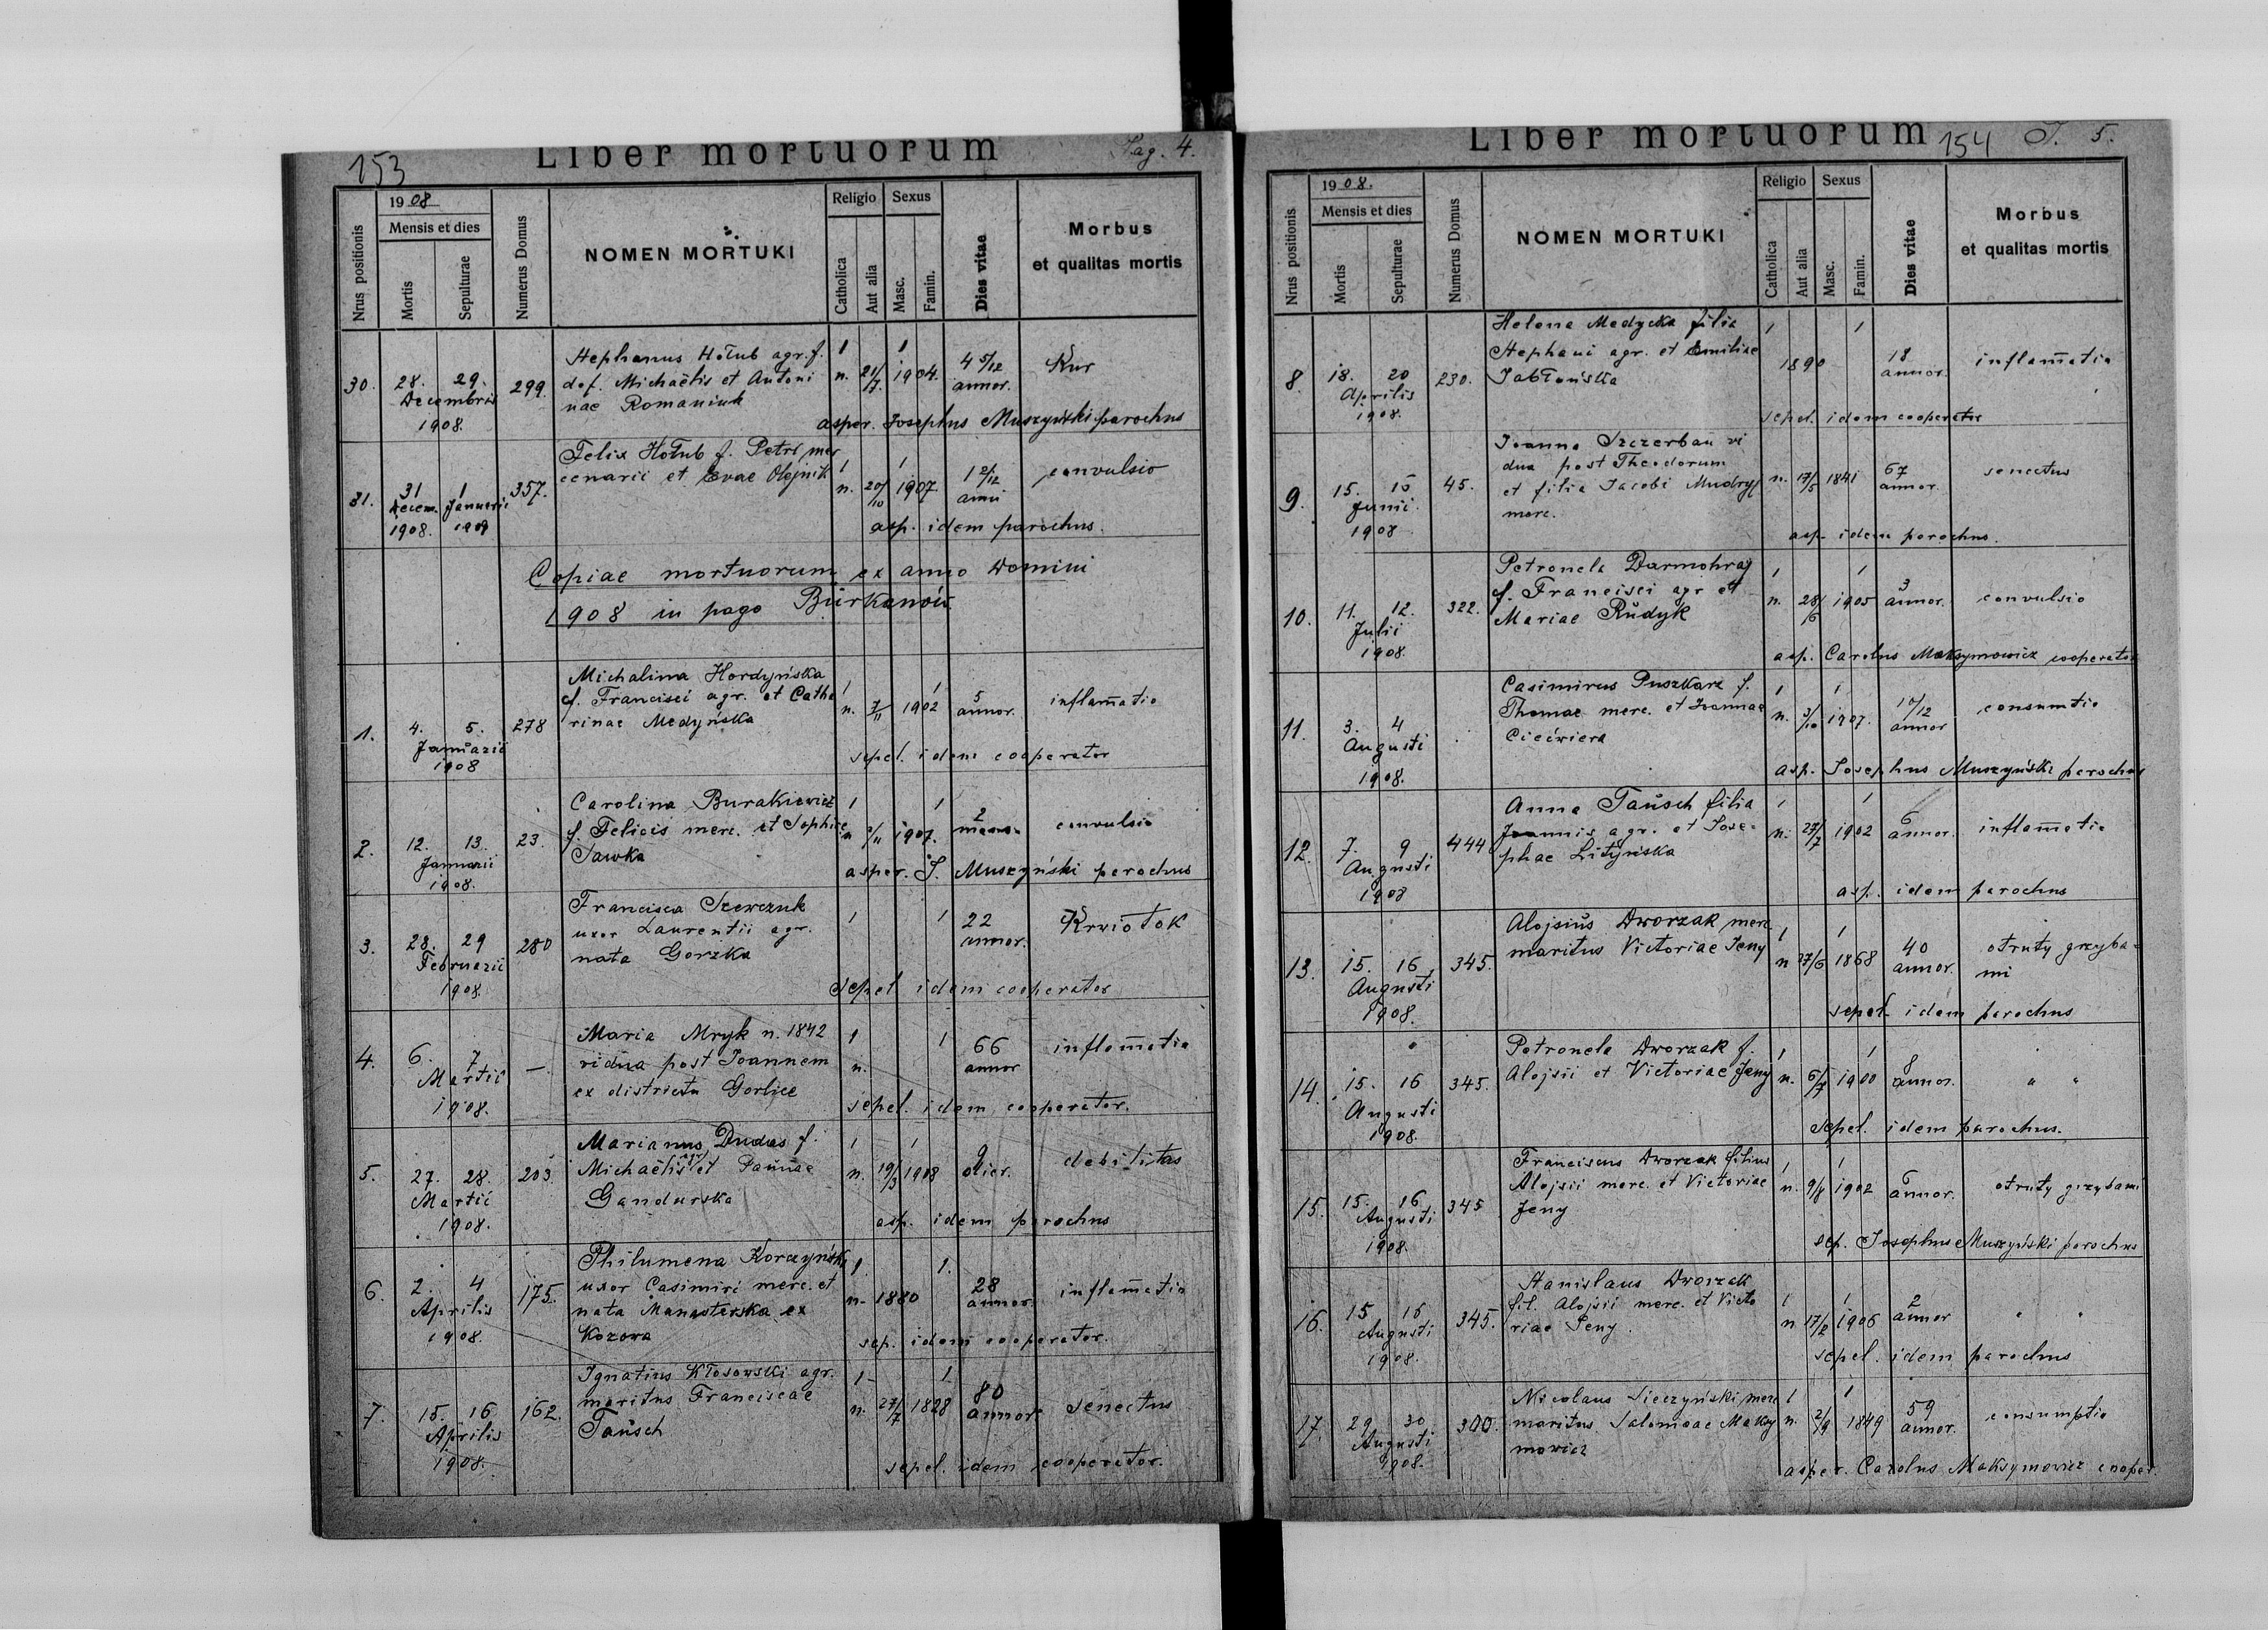 153
Liber mortuorum
Pag. 4.
Nrus positionis
1908
Mensis et dies
Mortis
Sepulturae
Numerus Domus
NOMEN MORTUKI
Religio
Catholica
Aut alia
Sexus
Masc.
Famin.
Dies vitae
Morbus
et qualitas mortis
30. 28. 29. Decembris 1908. 299.
Stephanus Hołub agr. f.
def. Michaëlis et Antoni
nae Romaniuk
1 1
n. 21/7 1904. 4 5/12 annor. Kur
asper. Josephus Muszyński parochus
31. 31 Decem. 1908. 1 Januarii 1909 357.
Felix Hołub f. Petri mer
cenarii et Evae Olejnik
1 1
n. 20/10 1907. 1 2/12 anni convulsio
asp. idem parochus.
Copiae mortuorum ex anno Domini
1908 in pago Burkanów.
1. 4. 5. Januarii 1908 278
Michalina Hordyńska
f. Francisci agr. et Catha
rinae Medyńska
1 1
n. 7/11 1902 5 annor. inflamatio
sepel. idem cooperator
2. 12. 13. Januarii 1908. 23.
Carolina Burakiewicz
f. Felicis merc. et Sophiae
Sawka
1 1
n /11 1907. 2 mens. convulsio
asper. J. Muszyński parochus
3. 28. 29 Februarii 1908. 280
Francisca Szewczuk
uxor Laurentii agr.
nata Gorzka
1 1 22 annor. Krwiotok
Sepel idem cooperator
4. 6. 7 Martii 1908. —.
Maria Mryk n. 1842
vidua post Joannem
ex districtu Gorlice
1 1
n. 66 annor inflamatio
sepel. idem cooperator.
5. 27. 28. Martii 1908. 203.
Marianus Dudas f.
Michaëlis agr. et Pauliae
Gandurska
1 1
n. 19/3 1908 9 dier. debilitas
asp. idem parochus
6. 2. 4 Aprilis 1908. 175.
Philumena Korczyńska
uxor Casimiri merc. et
nata Manasterska ex
Kozowa
1 1.
n. 1880 28 annor. inflamatio
sep. idem cooperator.
7. 15. 16 Aprilis 1908. 162.
Ignatius Kłosowski agr.
maritus Franciscae
Tausch
1 1
n. 27/7 1828 80 annor. Senectus
sepel. idem cooperator.
Liber mortuorum
154
5.
Nrus positionis
1908.
Mensis et dies
Mortis
Sepulturae
Numerus Domus
NOMEN MORTUKI
Religio
Catholica
Aut alia
Sexus
Masc.
Famin.
Dies vitae
Morbus
et qualitas mortis
8. 18. 20 Aprilis 1908. 230.
Helena Medycka filia
Stephani agr. et Emiliae
Jabłońska
1 1
1890 18 annor. inflamatio
sepel. idem cooperator
9. 15. 15 Junii 1908 45.
Joanna Szczerbau vi
dua post Theodorum
et filia Jacobi Mudryj
merc.
n. 17/5 1841 67 annor. senectus
asp. idem parochus.
10. 11. 12. Julii 1908. 322.
Petronela Darmohraj
f. Francisci agr et
Mariae Rudyk
1 1
n. 28/6 1905 3 annor. convulsio
asp. Carolus Maksymowicz cooperator
11. 3. 4 Augusti 1908.
Casimirus Puszkarz f.
Thomae merc. et Joannae
Ciećwierz
1 1
n. 3/10 1907. 10/12 annor consumtio
asp. Josephus Muszyński parochus
12. 7. 9 Augusti 1908 444
Anna Tausch filia
Joannis agr. et Jose-
phae Lityńska
1 1
n. 27/7 1902 6 annor. inflamatio
asp. idem parochus
13. 15. 16 Augusti 1908. 345.
Alojsius Dworzak merc
maritus Victoriae Jeny
1 1
n 27/6 1868 40 annor. otruty grzyba-
mi
sepel. idem parochus
14. 15. 16 Augusti 1908. 345.
Petronela Dworzak f.
Alojsii et Victoriae Jeny
1 1
n. 6/7 1900 8 annor. " "
Sepel. idem parochus.
15. 15. 16 Augusti 1908. 345
Franciscus Dworzak filius
Alojsii merc. et Victoriae
Jeny
1 1
n. 9/8 1902 6 annor. otruty grzybami
sep. Josephus Muszyński parochus
16. 15 16 Augusti 1908. 345.
Stanislaus Dworzak
fil. Alojsii merc. et Victo
riae Jeny.
1 1
n 17/2 1906 2 annor " "
sepel. idem parochus
17. 29 30 Augusti 1908. 300.
Nicolaus Sieczyński merc
maritus Salomeae Maksy
mowicz
1 1
n. 2/9 1849 59 annor. consumptio
asper. Carolus Maksymowicz cooper.